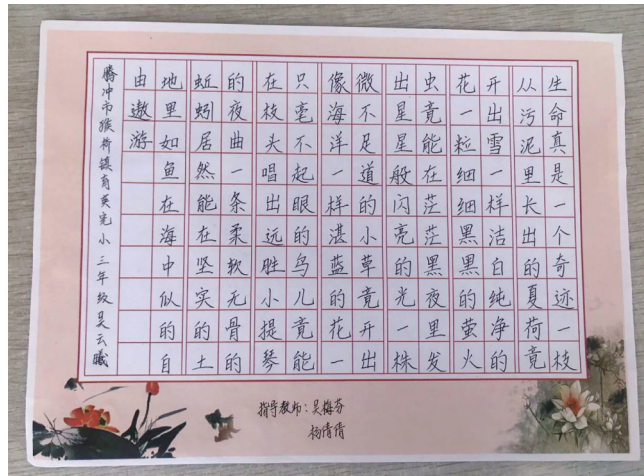 生命真是一个奇迹一枝
从污泥里长出的夏荷竟
开出雪一样洁白纯净的
花一粒细细黑黑的萤火
虫竟能在茫茫黑夜里发
出星星般闪亮的光一株
微不足道的小草竟开出
像海洋一样湛蓝的花一
只毫不起眼的鸟儿竟能
在枝头唱出远胜小提琴
的夜曲一条柔软无骨的
蚯蚓居然能在坚实的土
地里如鱼在海中似的自
由遨游
腾冲市猴桥镇育英完小三年级吴云曦
指导教师：吴梅芬
杨倩倩